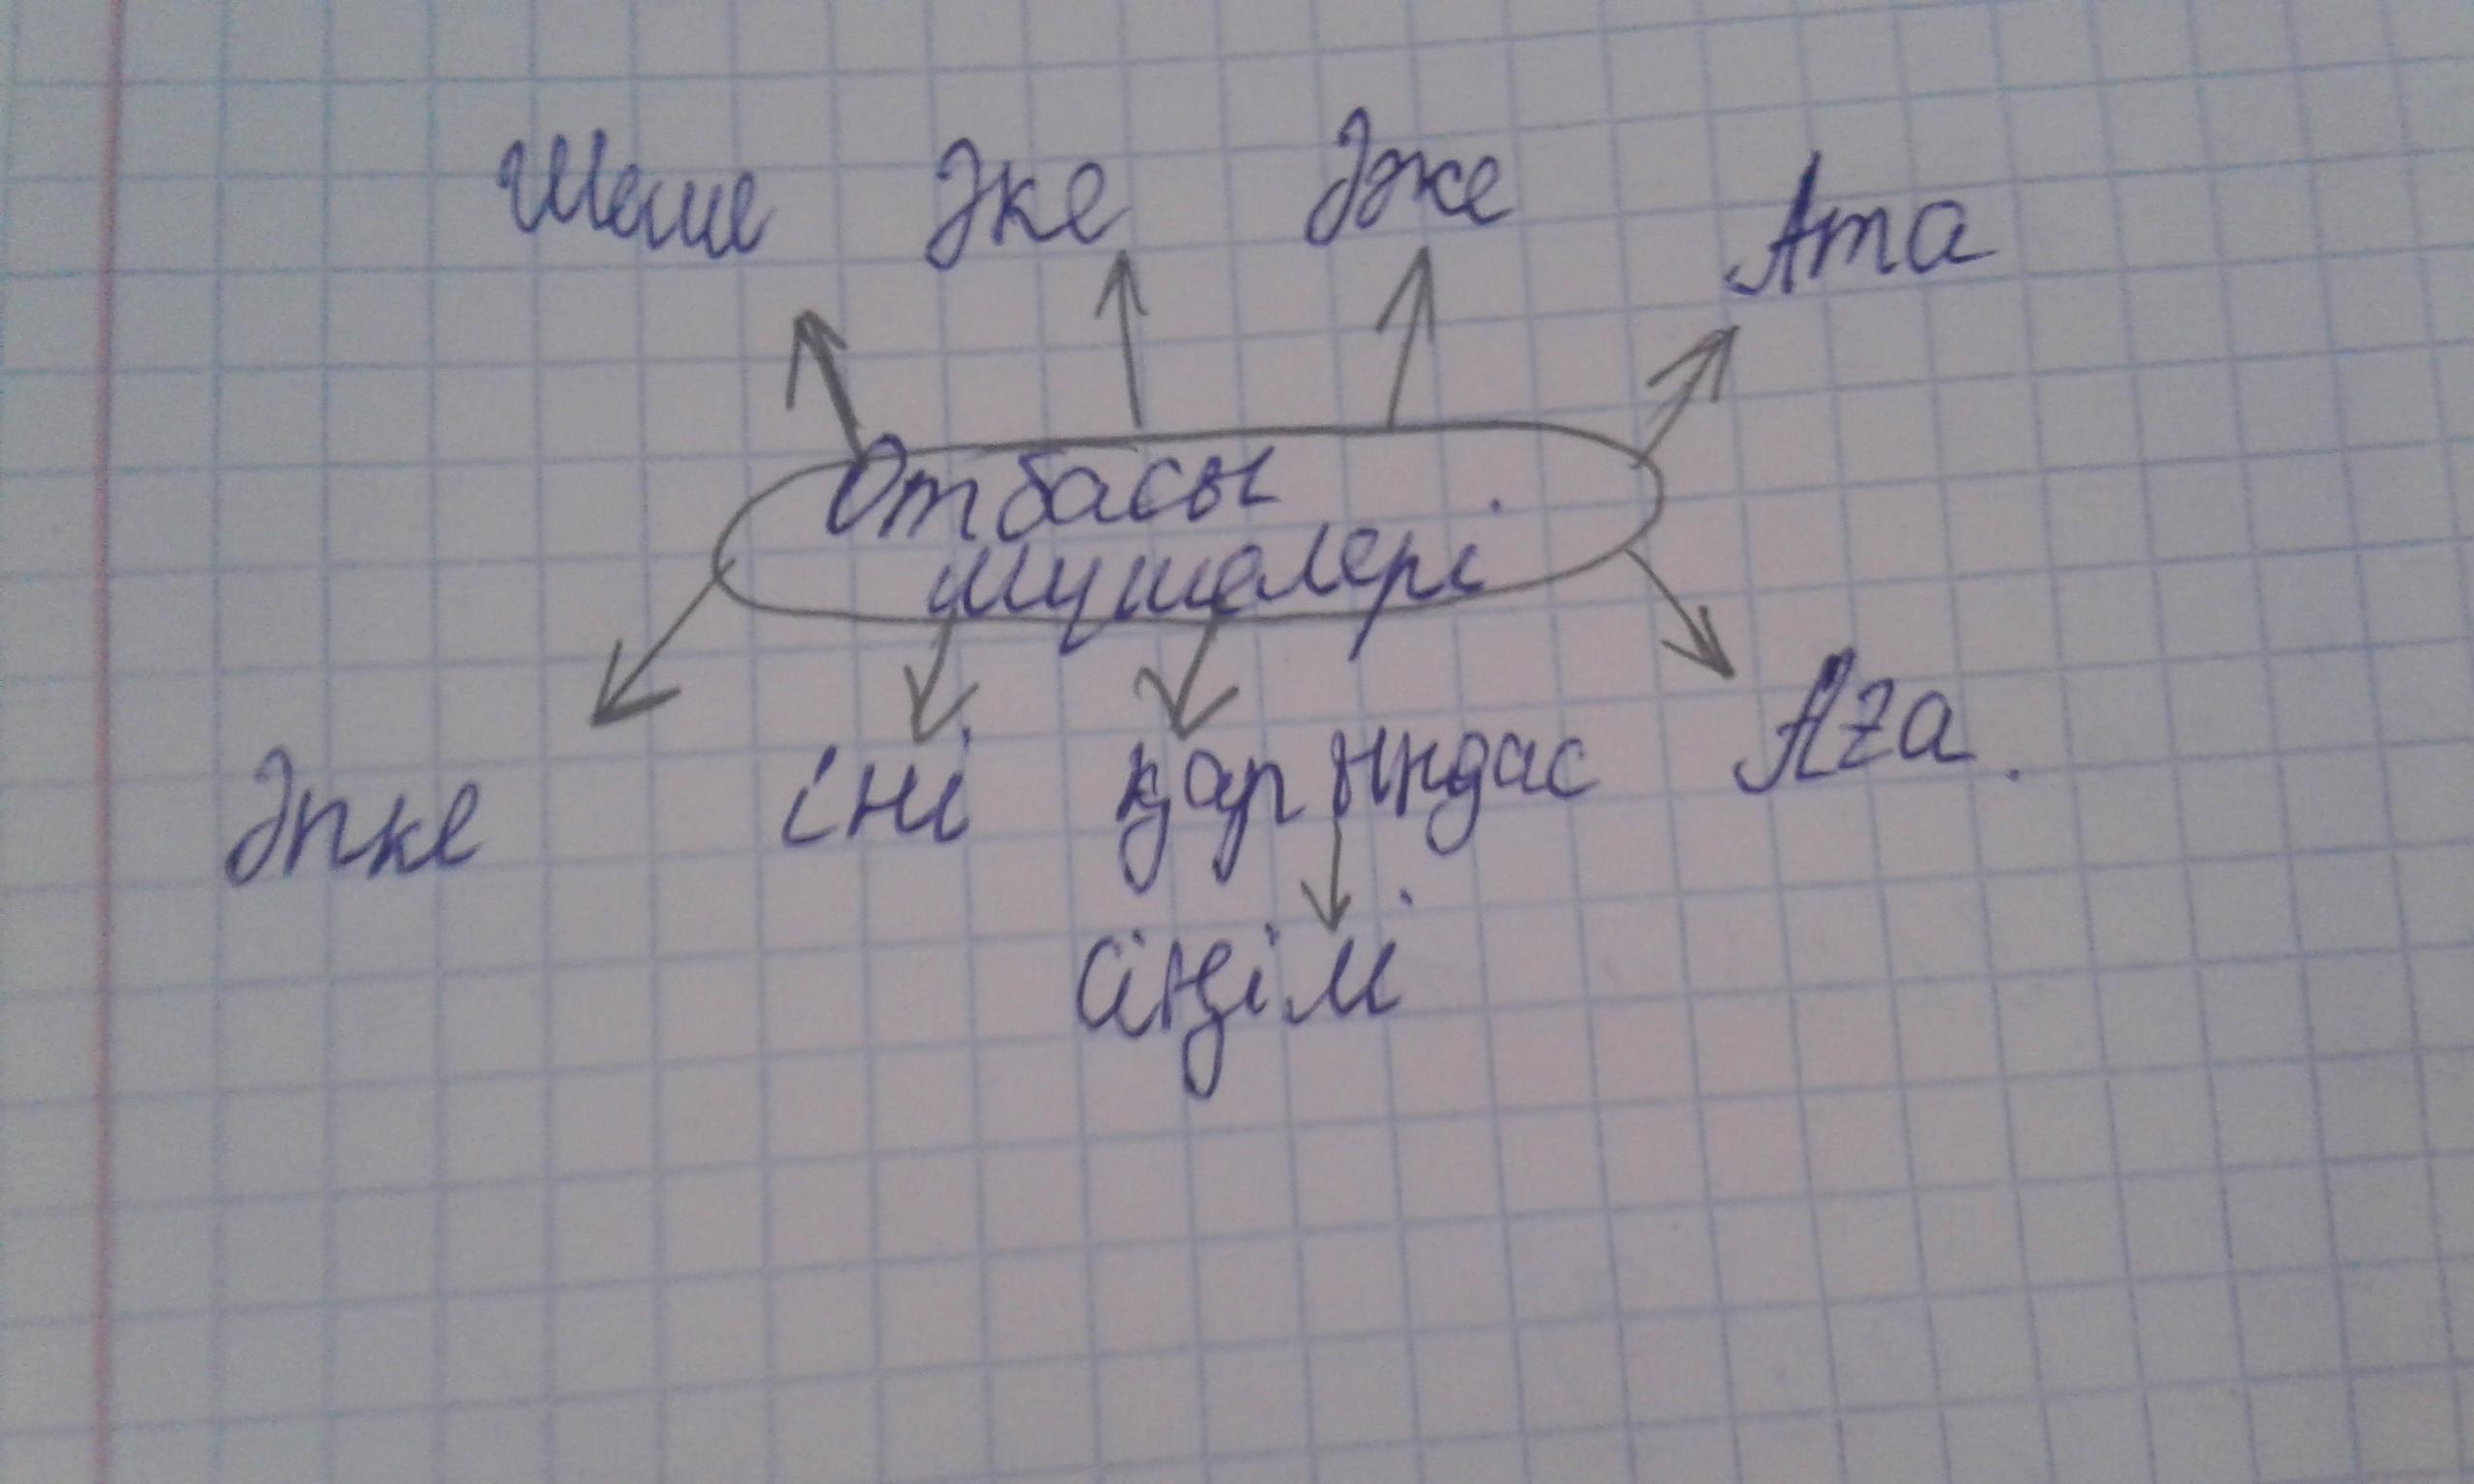 Шеше Әке Әже Ата
Отбасы
мүшелері
Әпке іні қарындас Аға.
сіңілі